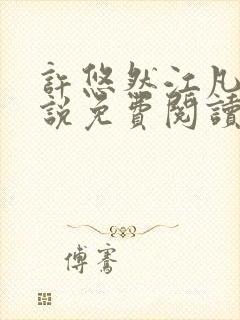 許悠然江凡
說免費閱讀
傅騫